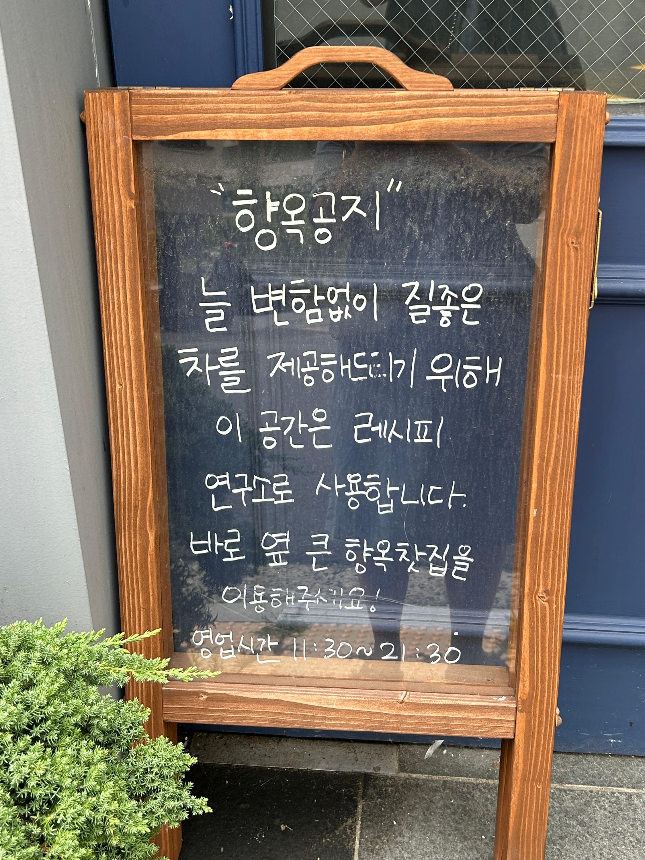 "향옥공지"
늘 변함없이 질좋은
차를 제공해드리기 위해
이 공간은 레시피
연구소로 사용합니다.
바로 옆 큰 향옥찻집을
이용해주세요!
영업시간 11:30~21:30